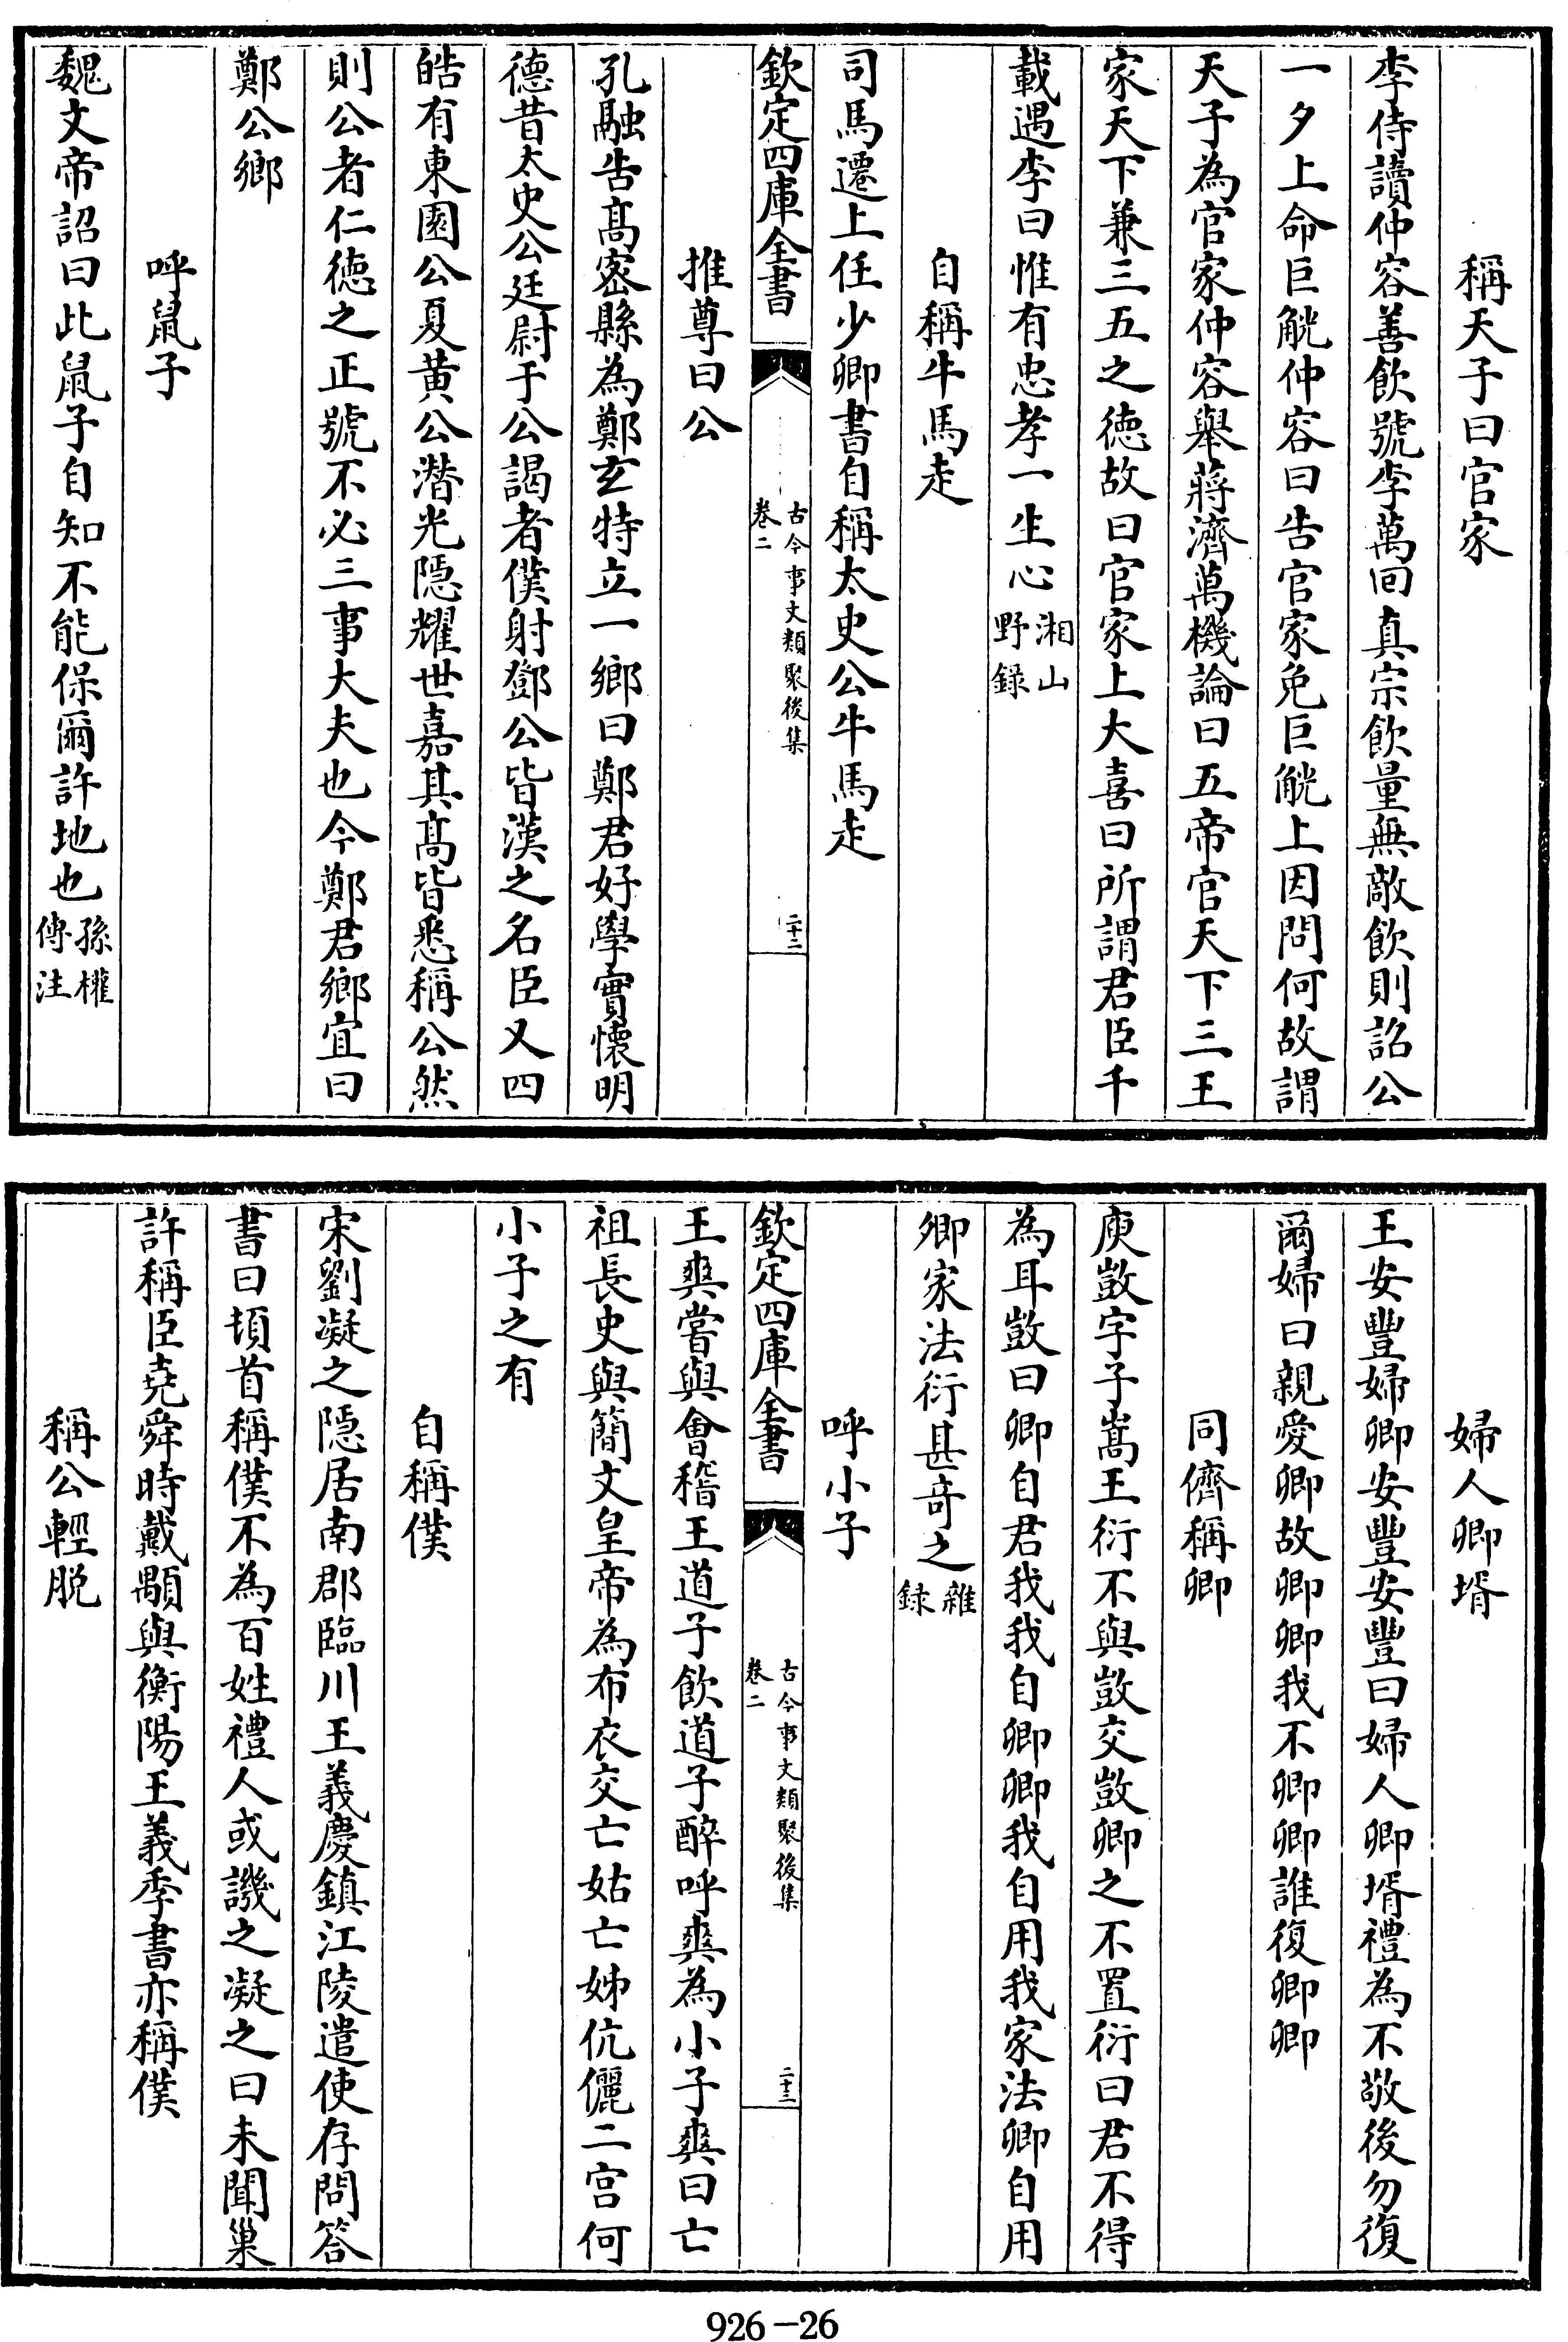 稱天子曰官家
李侍讀仲容善飲號李萬回真宗飲量無敵飲則詔公
一夕上命巨觥仲容曰告官家免巨觥上因問何故謂
天子為官家仲容舉蔣濟萬機論曰五帝官天下三王
家天下兼三五之徳故曰官家上大喜曰所謂君臣千
載遇李曰惟有忠孝一生心湘山
野錄
自稱牛馬走
司馬遷上任少卿書自稱太史公牛馬走
欽定四庫全書
古今事文類聚後集
卷二
二十二
推尊曰公
孔融告髙密縣為鄭玄特立一鄉曰鄭君好學實懷明
德昔太史公廷尉于公謁者僕射鄧公皆漢之名臣又四
皓有東園公夏黄公潛光隱耀世嘉其髙皆悉稱公然
則公者仁徳之正號不必三事大夫也今鄭君鄉宜曰
鄭公鄉
呼鼠子
魏文帝詔曰此鼠子自知不能保爾許地也孫權
傳注
婦人卿壻
王安豐婦卿安豐安豐曰婦人卿壻禮為不敬後勿復
爾婦曰親愛卿故卿卿我不卿卿誰復卿卿
同儕稱卿
庾敳字子嵩王衍不與敳交敳卿之不置衍曰君不得
為耳敳曰卿自君我我自卿卿我自用我家法卿自用
卿家法衍甚奇之雜
録
呼小子
欽定四庫全書
古今事文類聚後集
卷二
二十三
王爽嘗與會稽王道子飲道子醉呼爽為小子爽曰亡
祖長史與簡文皇帝為布衣交亡姑亡姊伉儷二宫何
小子之有
自稱僕
宋劉凝之隱居南郡臨川王義慶鎮江陵遣使存問答
書曰頓首稱僕不為百姓禮人或譏之凝之曰未聞巢
許稱臣堯舜時戴顒與衡陽王義季書亦稱僕
稱公輕脱
926-26